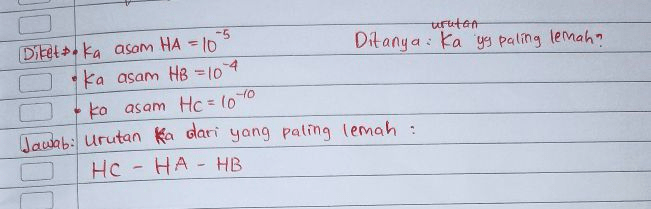 Diket → • Ka asam HA = 10⁻⁵
Ditanya : urutan Ka yg paling lemah?
• Ka asam HB = 10⁻⁴
• ka asam HC = 10⁻¹⁰
Jawab: Urutan Ka dari yang paling lemah :
HC - HA - HB